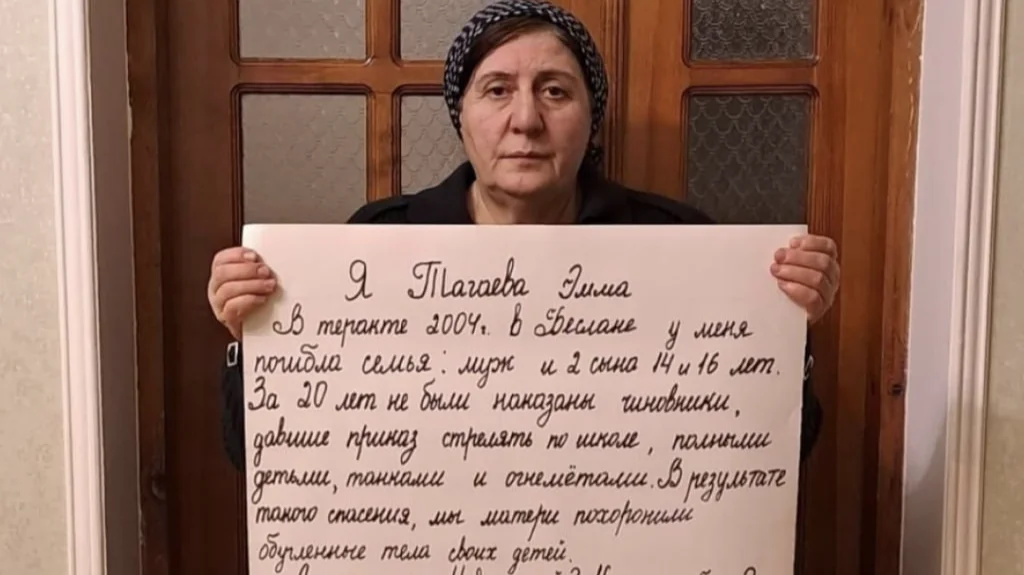 Я Тагаева Эмма
В теракте 2004г. в Беслане у меня
погибла семья: муж и 2 сына 14 и 16 лет.
За 20 лет не были наказаны чиновники,
давшие приказ стрелять по школе, полными
детьми, танками и огнемётами. В результате
такого спасения, мы матери похоронили
обугленные тела своих детей.